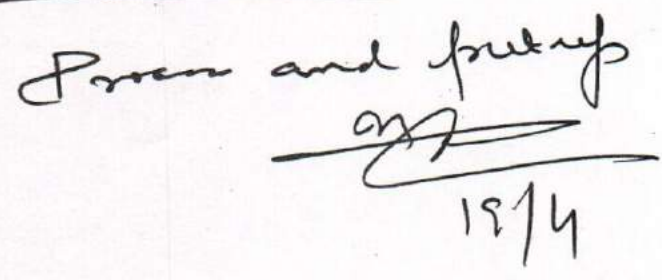 Process and put up
19/4